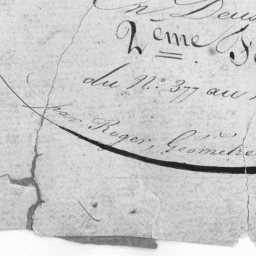 En Deux
2ème Fe
du N.° 377 au
par Roger, Géomètre